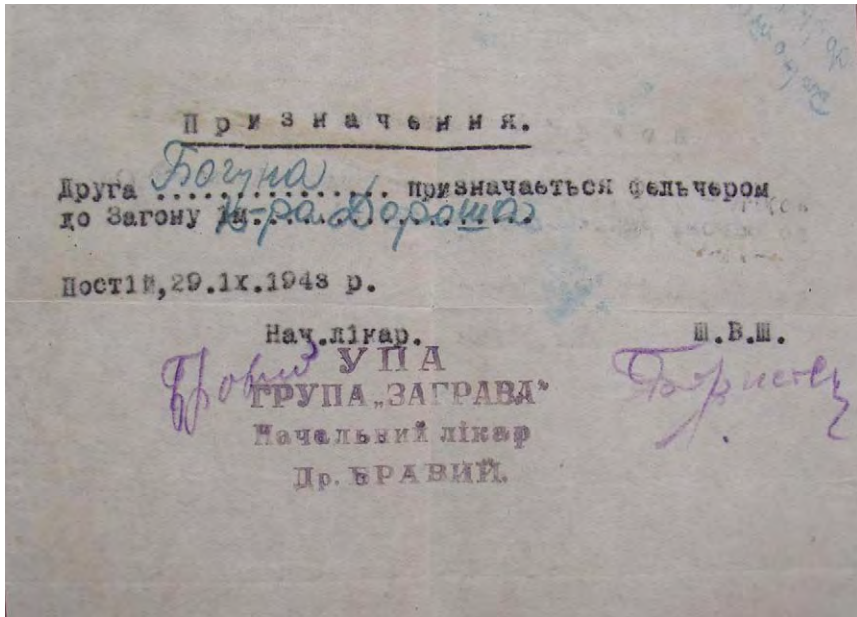 Призначення.
Друга Богуна призначається фельчером
до Загону ім. к-ра Дороша
Постій,29.IX.1943 р.
Нач.лікар. Ш.В.Ш.
УПА
ГРУПА „ЗАГРАВА"
Начальний лікар
Др. БРАВИЙ.